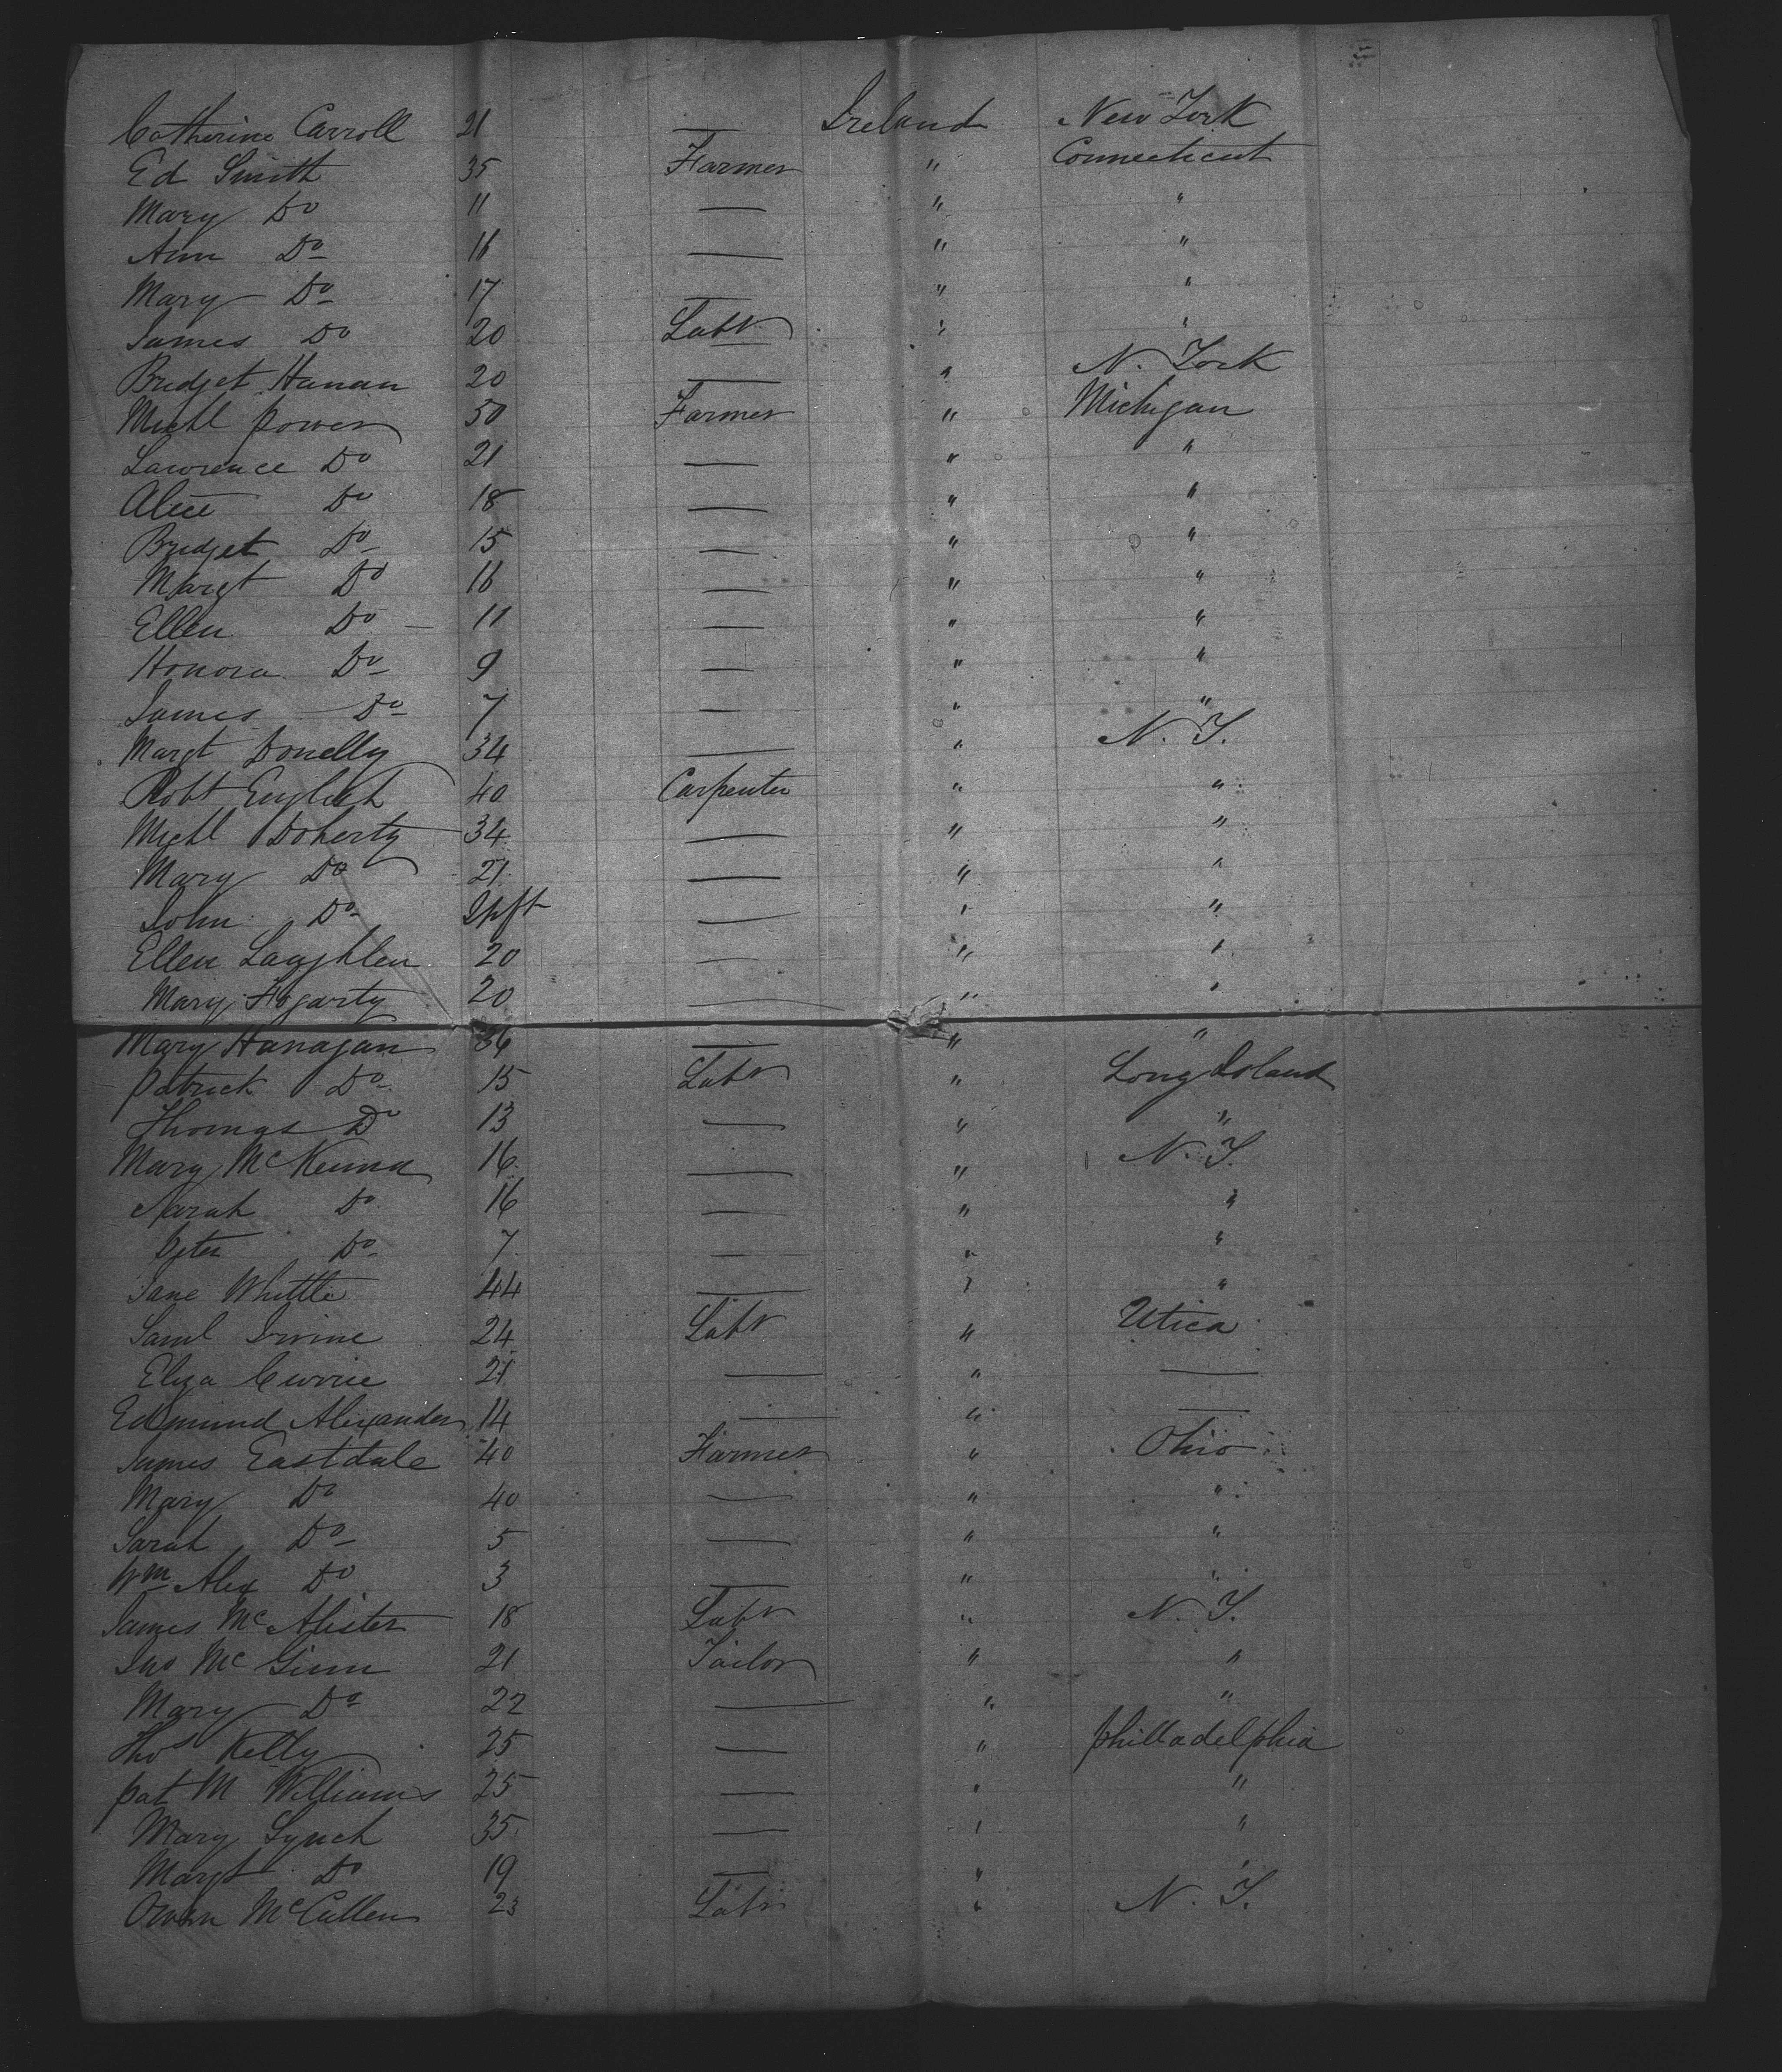 Catherine Carroll 21 — Ireland New York
Ed Smith 35 Farmer " Connecticut
Mary Do 11 — " "
Ann Do 16 — " "
Mary Do 17 — " "
James Do 20 Labr " "
Bridget Hanan 20 — " N. York
Michl Power 50 Farmer " Michigan
Lawrence Do 21 — " "
Alice Do 18 — " "
Bridget Do 15 — " "
Margt Do 16 — " "
Ellen Do 11 — " "
Honora Do 9 — " "
James Do 7 — " "
Margt Donelly 34 — " N. Y.
Robt English 40 Carpenter " "
Michl Doherty 34 — " "
Mary Do 21 — " "
John Do — " "
Ellen Laughlen 20 — " "
Mary Fogarty 20 — " "
Mary Hanagan 36 — " "
Patrick Do 15 Labr " Long Island
Thomas Do 13 — " "
Mary McKenna 16 — " N. Y.
Sarah Do 16 — " "
Peter Do 7 — " "
Jane Whittle 44 — " "
Saml Irvine 24 Labr " Utica
Eliza Currie 21 — " —
Edmund Alexander 14 — " —
James Eastdale 40 Farmer " Ohio
Mary Do 40 — " "
Sarah Do 5 — " "
Wm Alex Do 3 — " "
James McAlister 18 Labr " N. Y.
Jno McGinn 21 Tailor " "
Mary Do 22 — " "
Thos Kelly 25 — " Philladelphia
Pat M Williams 25 — " "
Mary Lynch 35 — " "
Margt Do 19 — " "
Owen McCullen 23 Labr " N. Y.